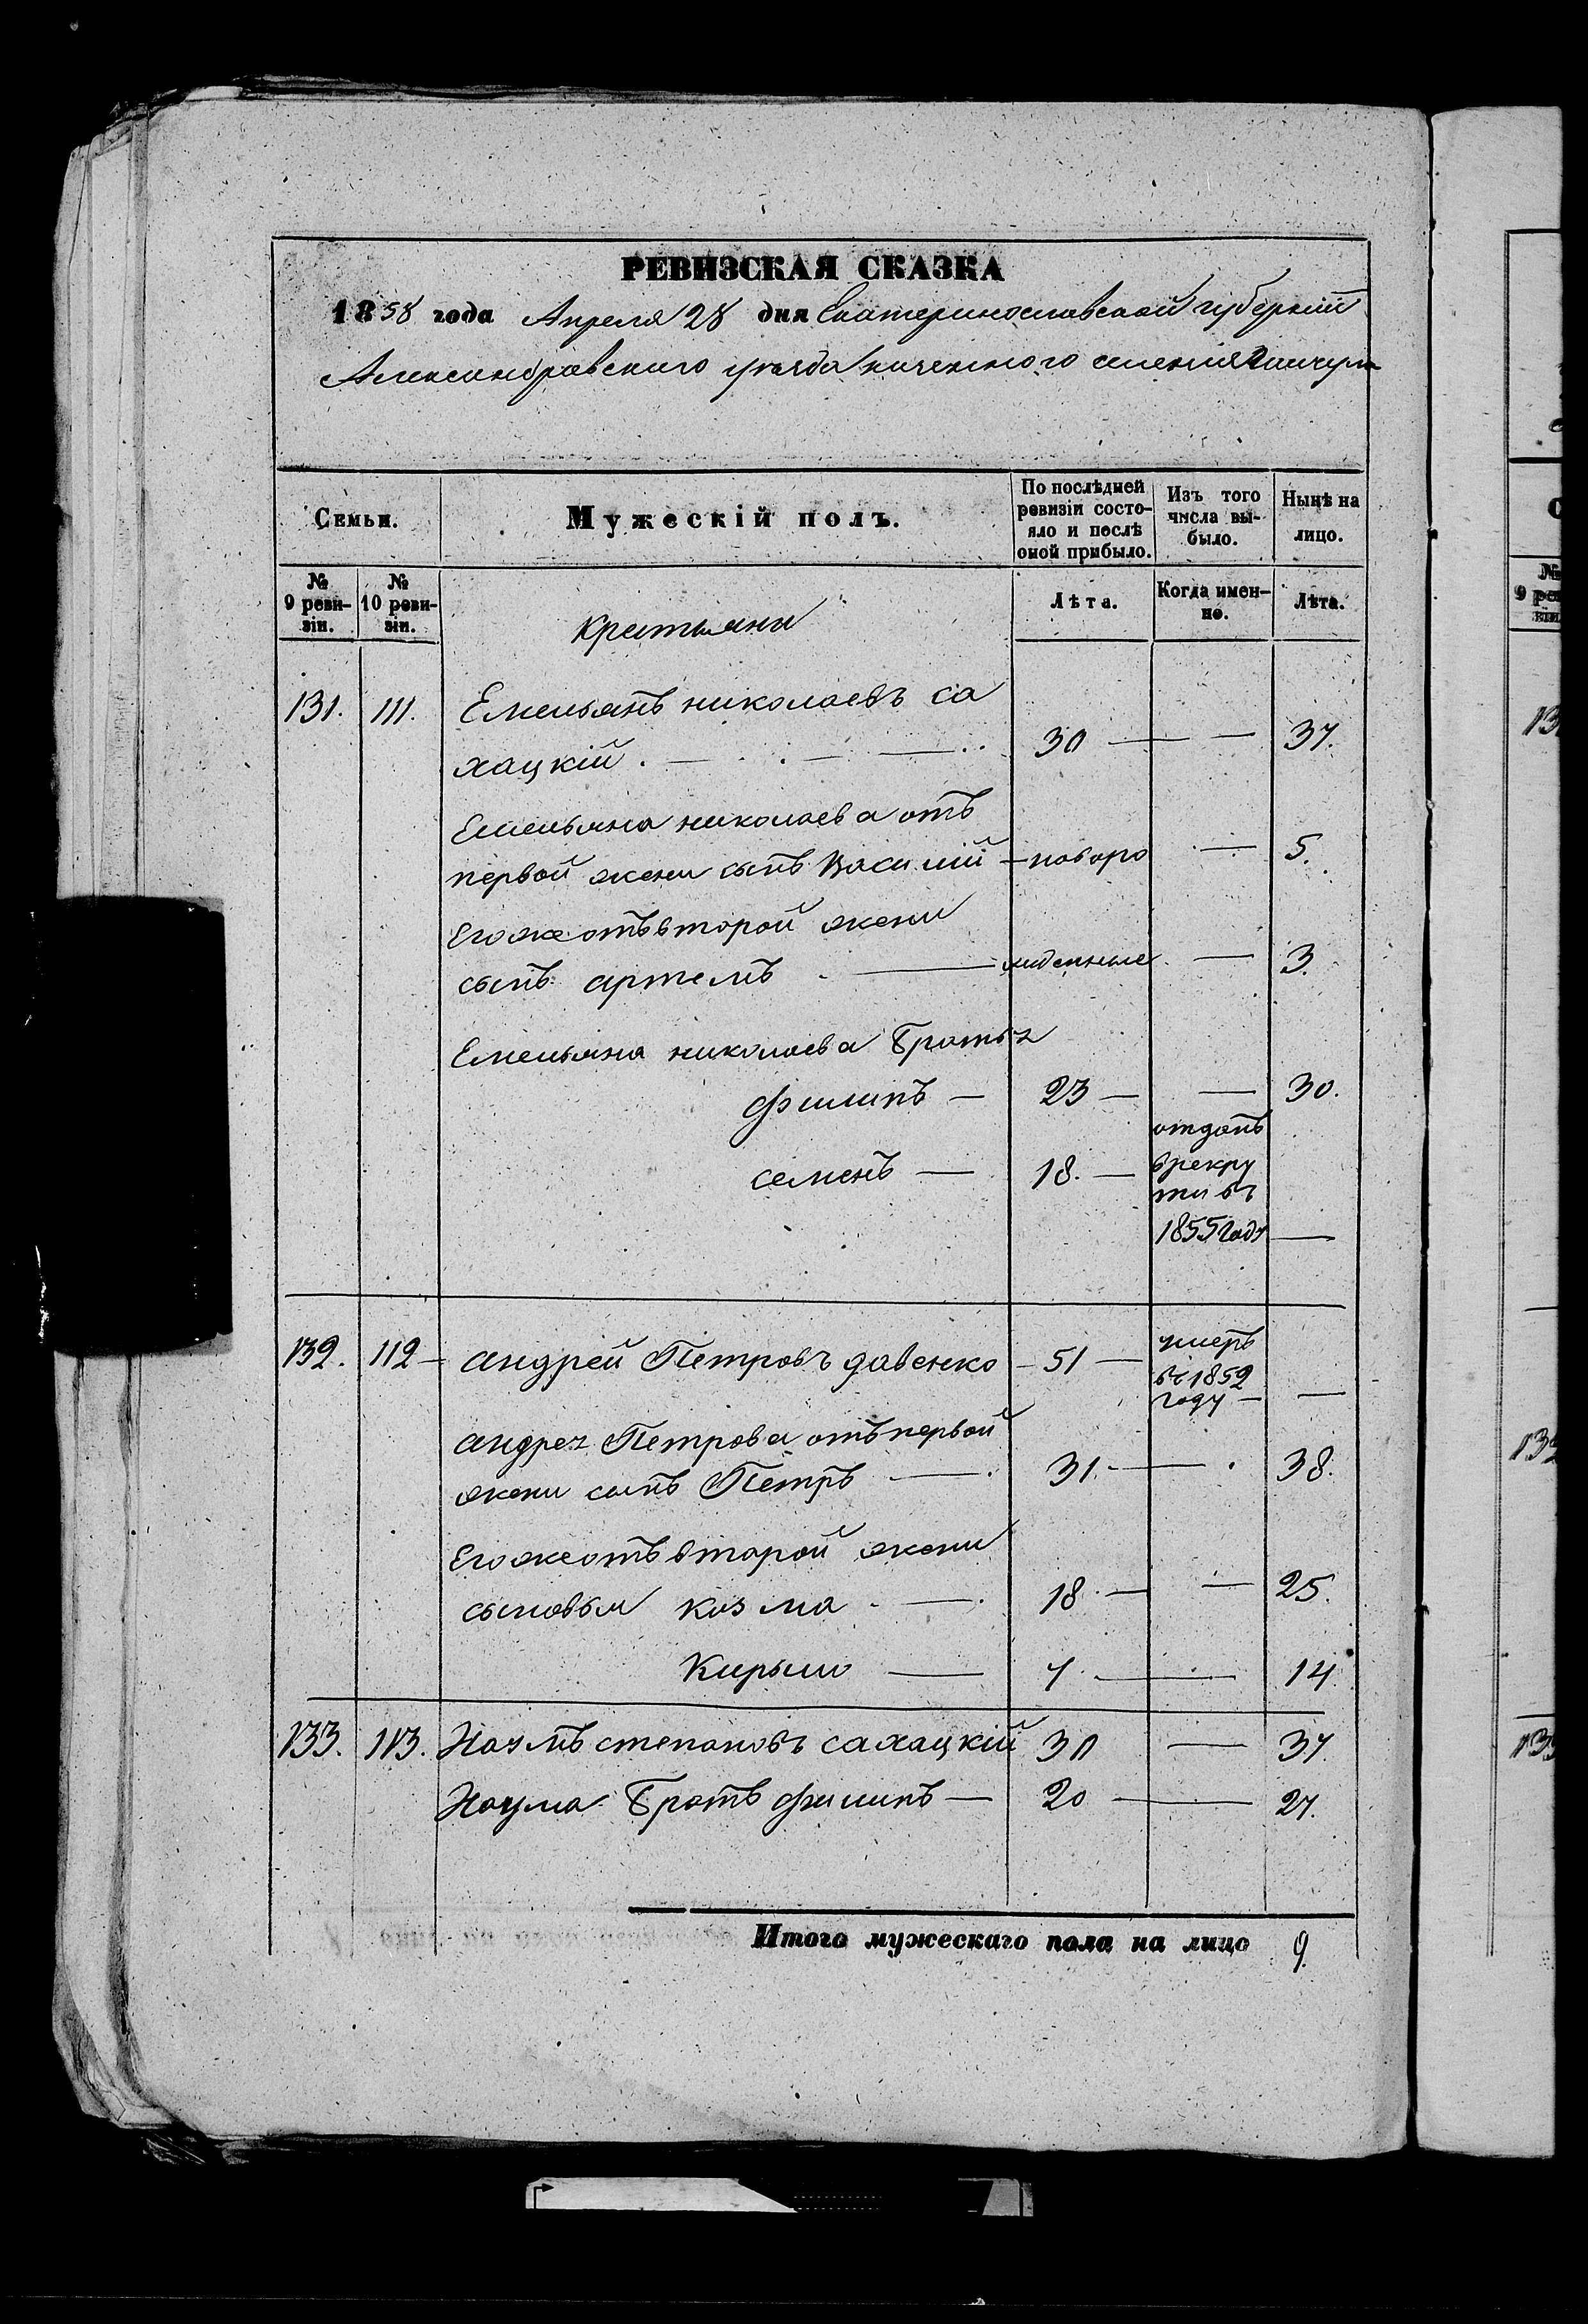 РЕВИЗСКАЯ СКАЗКА
1858 года Апреля 28 дня Екатеринославской губерніи
Александровского уезда казенного селения
Семьи.
Мужескій полъ.
По послѣдней ревизіи состо-
яло и послѣ
оной прибыло.
Изъ того
числа вы-
было.
Нынѣ на
лицо.
№
9 реви-
зіи.
№
10 реви-
зіи.
Крестьяни
Лѣта.
Когда имен-
но.
Лѣта.
131. 111. Емельянъ николаевъ са
хацкій. 30 37.
Емельяна николаева отъ
первой жени сынъ Василий 5.
Егоже отъ второй жени
сынъ артемъ 3.
Емельяна николаева Братья
филипъ 23 30.
семенъ 18. отданъ
в рекру
ти въ
1855 году
132. 112 андрей Петровъ давенко 51 умеръ
въ 1852
году
андрея Петрова отъ первой
жени сынъ Петръ 31. 38.
Егоже отъ второй жени
сыновья козма 18. 25.
Кирыло 7. 14.
133. 113. Наумъ степановъ сахацкій 30 37.
Наума Братъ филипъ 20 27.
Итого мужескаго пола на лицо 9.